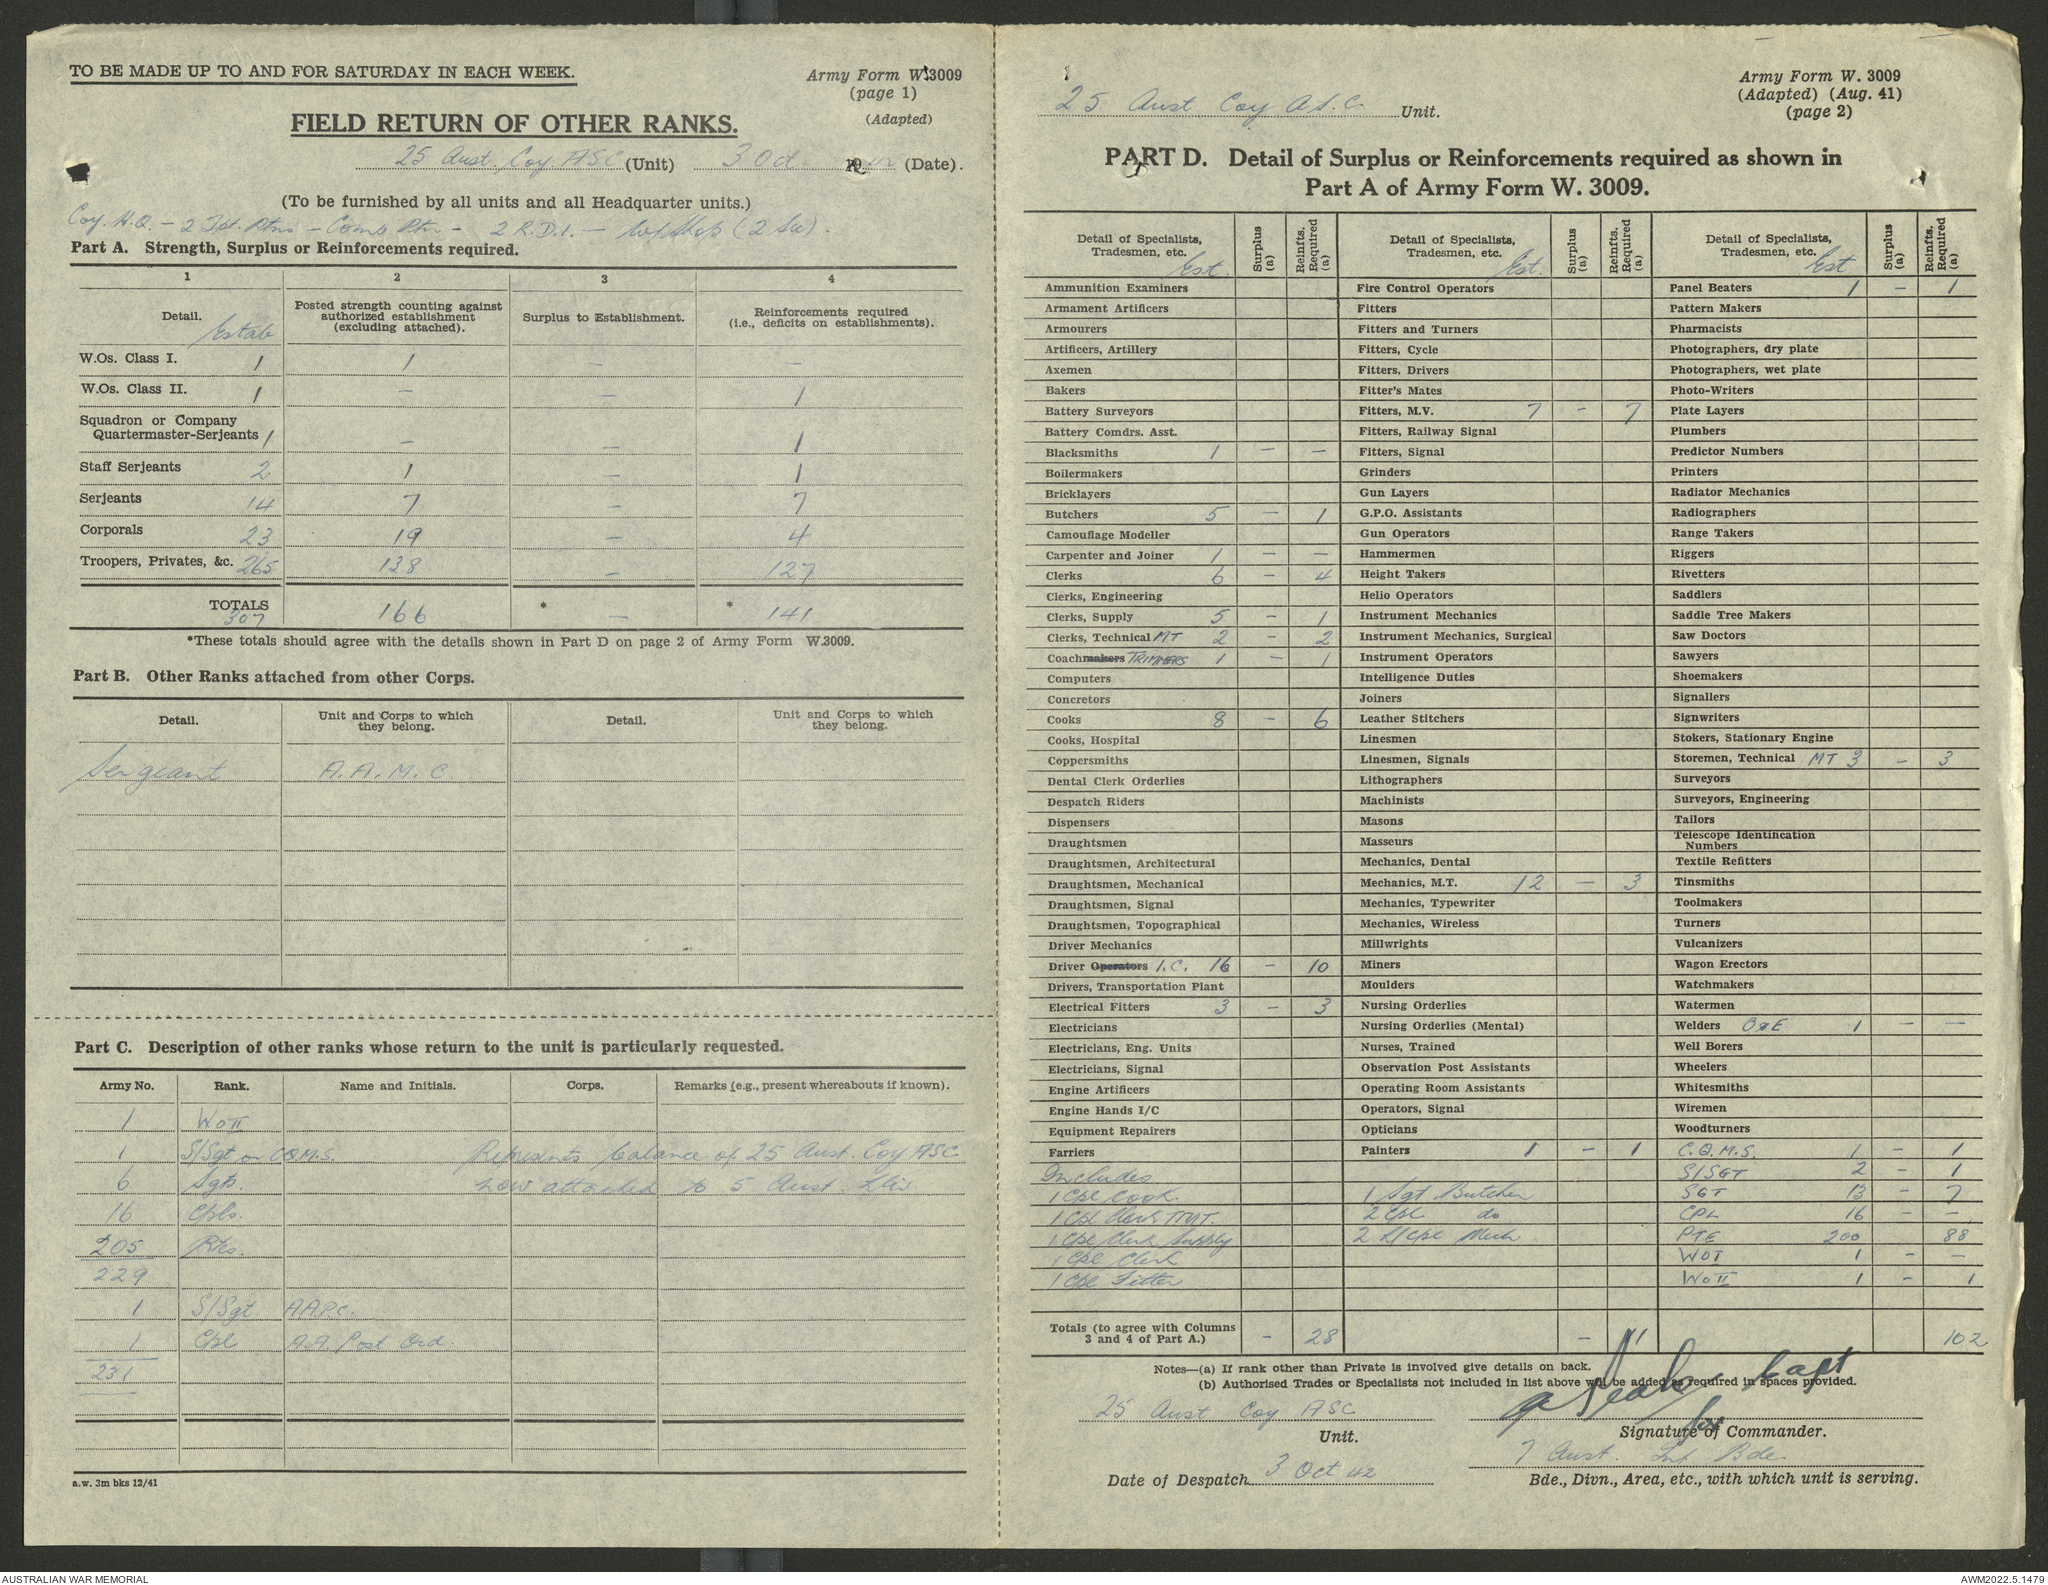 TO BE MADE UP TO AND FOR SATURDAY IN EACH WEEK.
Army Form W.3009
(page 1)
(Adapted)
FIELD RETURN OF OTHER RANKS.
25 Aust. Coy. ASC (Unit) 3 Oct 1942 (Date).
(To be furnished by all units and all Headquarter units.)
Coy. H.Q. – 2 Tpt. Ptns – Comp Ptn – 2 R.D.I. – W/Shop (2 Sec).
Part A. Strength, Surplus or Reinforcements required.
1 2 3 4
Detail. Estab
Posted strength counting against authorized establishment (excluding attached).
Surplus to Establishment.
Reinforcements required (i.e., deficits on establishments).
W.Os. Class I. 1 1 – –
W.Os. Class II. 1 – – 1
Squadron or Company
Quartermaster-Serjeants 1 – – 1
Staff Serjeants 2 1 – 1
Serjeants 14 7 – 7
Corporals 23 19 – 4
Troopers, Privates, &c. 265 138 – 127
TOTALS 307 166 * – * 141
*These totals should agree with the details shown in Part D on page 2 of Army Form W.3009.
Part B. Other Ranks attached from other Corps.
Detail. Unit and Corps to which they belong. Detail. Unit and Corps to which they belong.
Sergeant A.A.M.C
Part C. Description of other ranks whose return to the unit is particularly requested.
Army No. Rank. Name and Initials. Corps. Remarks (e.g., present whereabouts if known).
1 WO II
1 S/Sgt or CQ.M.S. Represents balance of 25 Aust. Coy ASC
6 Sgts. now attached to 5 Aust. Div
16 Cpls.
205 Ptes.
229
1 S/Sgt A.A.P.C.
1 Cpl A.A. Post Ord.
231
a.w. 3m bks 12/41
25 Aust Coy A.S.C. Unit.
Army Form W. 3009
(Adapted) (Aug. 41)
(page 2)
PART D. Detail of Surplus or Reinforcements required as shown in
Part A of Army Form W. 3009.
Detail of Specialists, Tradesmen, etc. Est Surplus (a) Reinfts. Required (a)
Ammunition Examiners
Armament Artificers
Armourers
Artificers, Artillery
Axemen
Bakers
Battery Surveyors
Battery Comdrs. Asst.
Blacksmiths 1 – –
Boilermakers
Bricklayers
Butchers 5 – 1
Camouflage Modeller
Carpenter and Joiner 1 – –
Clerks 6 – 4
Clerks, Engineering
Clerks, Supply 5 – 1
Clerks, Technical MT 2 – 2
Coachmakers TRIMMERS 1 – 1
Computers
Concretors
Cooks 8 – 6
Cooks, Hospital
Coppersmiths
Dental Clerk Orderlies
Despatch Riders
Dispensers
Draughtsmen
Draughtsmen, Architectural
Draughtsmen, Mechanical
Draughtsmen, Signal
Draughtsmen, Topographical
Driver Mechanics
Driver Operators I.C. 16 – 10
Drivers, Transportation Plant
Electrical Fitters 3 – 3
Electricians
Electricians, Eng. Units
Electricians, Signal
Engine Artificers
Engine Hands I/C
Equipment Repairers
Farriers
Includes
1 Cpl Cook.
1 Cpl Clerk TMT.
1 Cpl Clerk Supply
1 Cpl Clerk
1 Cpl Fitter
Totals (to agree with Columns 3 and 4 of Part A.) – 28
Detail of Specialists, Tradesmen, etc. Est. Surplus (a) Reinfts. Required (a)
Fire Control Operators
Fitters
Fitters and Turners
Fitters, Cycle
Fitters, Drivers
Fitter's Mates
Fitters, M.V. 7 – 7
Fitters, Railway Signal
Fitters, Signal
Grinders
Gun Layers
G.P.O. Assistants
Gun Operators
Hammermen
Height Takers
Helio Operators
Instrument Mechanics
Instrument Mechanics, Surgical
Instrument Operators
Intelligence Duties
Joiners
Leather Stitchers
Linesmen
Linesmen, Signals
Lithographers
Machinists
Masons
Masseurs
Mechanics, Dental
Mechanics, M.T. 12 – 3
Mechanics, Typewriter
Mechanics, Wireless
Millwrights
Miners
Moulders
Nursing Orderlies
Nursing Orderlies (Mental)
Nurses, Trained
Observation Post Assistants
Operating Room Assistants
Operators, Signal
Opticians
Painters 1 – 1
1 Sgt Butcher
2 Cpl do
2 L/Cpl Mech
– 11
Detail of Specialists, Tradesmen, etc. Est Surplus (a) Reinfts. Required (a)
Panel Beaters 1 – 1
Pattern Makers
Pharmacists
Photographers, dry plate
Photographers, wet plate
Photo-Writers
Plate Layers
Plumbers
Predictor Numbers
Printers
Radiator Mechanics
Radiographers
Range Takers
Riggers
Rivetters
Saddlers
Saddle Tree Makers
Saw Doctors
Sawyers
Shoemakers
Signallers
Signwriters
Stokers, Stationary Engine
Storemen, Technical MT 3 – 3
Surveyors
Surveyors, Engineering
Tailors
Telescope Identification Numbers
Textile Refitters
Tinsmiths
Toolmakers
Turners
Vulcanizers
Wagon Erectors
Watchmakers
Watermen
Welders O&E 1 – –
Well Borers
Wheelers
Whitesmiths
Wiremen
Woodturners
C.Q.M.S. 1 – 1
S/SGT 2 – 1
SGT 13 – 7
CPL 16 – –
PTE 200 88
WOI 1 – –
WOII 1 – 1
102
Notes—(a) If rank other than Private is involved give details on back.
(b) Authorised Trades or Specialists not included in list above will be added as required in spaces provided.
Capt
for
25 Aust Coy ASC
Unit.
Signature of Commander.
7 Aust. Inf Bde
Date of Despatch 3 Oct 42
Bde., Divn., Area, etc., with which unit is serving.
AUSTRALIAN WAR MEMORIAL
AWM2022.5.1479